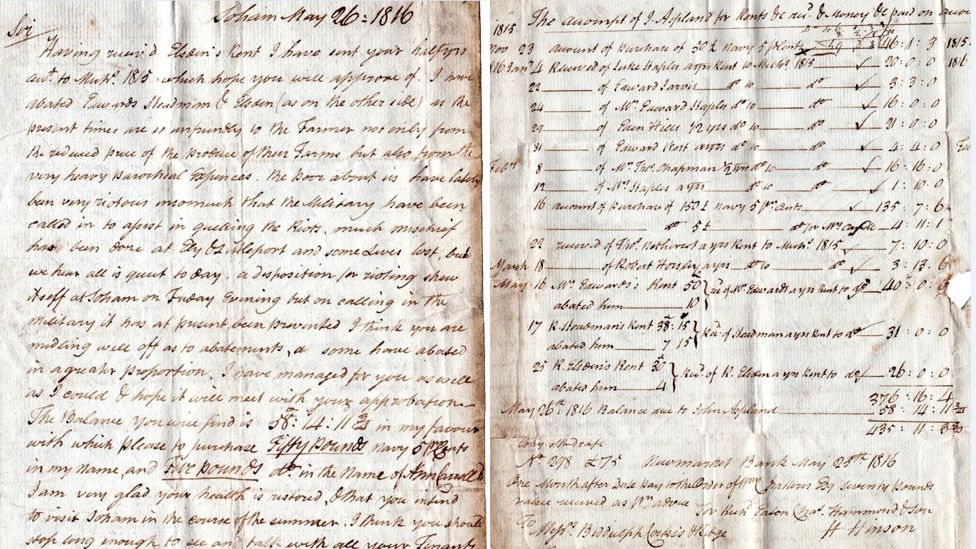 Soham May 26: 1816
Sir
Having receiv'd Elsden's Rent I have sent your halfyrs
acct. to Michs. 1815 which hope you will approve of. I have
abated Edwards Steadman & Elsden (as on the other side) as the
present times are so unfriendly to the Farmer not only from
the reduced price of the produce of their Farms but also from the
very heavy Parochial Expences. the Poor about us have lately
been very riotous insomuch that the Military have been
called in to assist in quelling the Riots, much mischief
has been done at Ely & Littleport and some Lives lost, but
we hear all is quiet to day. a disposition for rioting shew
itself at Soham on Friday Evening but on calling in the
Military it has at present been prevented I think you are
midling well off as to abatements, as some have abated
in a greater proportion. I have managed for you as well
as I could & hope it will meet with your approbation
The Balance you will find is 58: 14: 11 3/4 in my favour
with which please to purchase Fifty Pounds navy 5 pr Cents
in my name, and Five pounds do. in the name of Ann Carroll
I am very glad your health is restored, & that you intend
to visit Soham in the course of the summer. I think you should
stop long enough to see and talk with all your Tenants
The account of J. Aspland for Rents &c recd. & Money &c paid on
1815
Nov 23 amount of Purchase of 50£ navy 5 pr Cents 46: 1: 3 1815
1816 Jany 4 Received of Luke Staples ayrs Rent to Michs 1815 20: 0: 0 1816
22 of Edward Jarvis do to do 3: 3: 0
24 of Mr. Edward Staples do to do 16: 0: 0
29 of Hills 1/2 yrs do to do 21: 0: 0
31 of Edward Rost ayrs do to do 4: 4: 0
Feby 8 of Mr. Thos. Chapman 1/2 yrs do to do 16: 16: 0
12 of Mr. Staples ayrs do to do 1: 10: 0
16 amount of Purchase of 150£ navy 5 pr. Cents 135: 7: 6
do 5£ do for Mrs 4: 11: 1
22 received of Thos. Rothwest ayrs Rent to Michs. 1815 7: 10: 0
March 18 of Robert Horsley ayrs do to do 3: 13: 6
May 16 Mr. Edwards's Rent 50 abated him 10 Recd. of Mr. Edwards ayrs Rent to do 40: 0: 0
17 R. Steadman's Rent 38: 15 abated him 7 15 Recd. of Steadman ayrs Rent to do 31: 0: 0
25 R. Elsden's Rent 30 abated him 4 Recd. of R. Elsden ayrs Rent to do 26: 0: 0
376: 16: 4
May 26th 1816 Balance due to John Aspland 58: 14: 11 3/4
435: 11: 3 3/4
Copy of Draft
No 298 £75 Newmarket Bank May 25th 1816
One Month after date pay to the Order of Seventy Pounds
value received as pr. advice
For Eaton Hammond & Son
To H Hinson
Messrs. Biddulph Cocks & Ridge